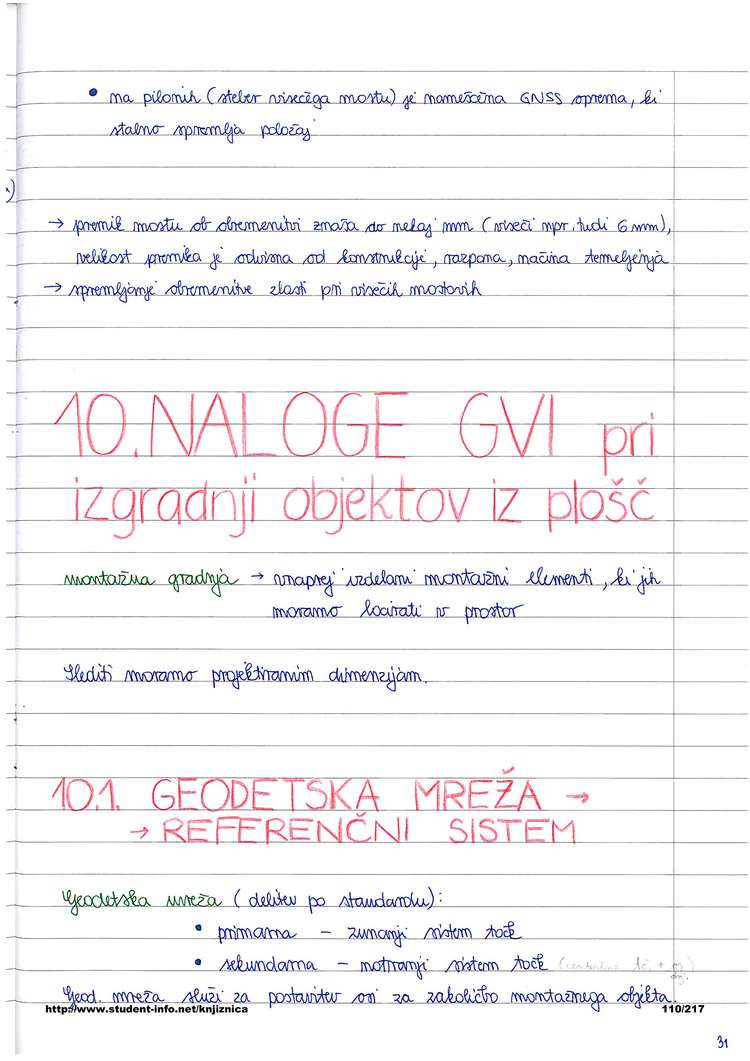 • na pilonih (steber visečega mostu) je nameščena GNSS oprema, ki
stalno spremlja položaj
→ premik mostu ob obremenitvi znaša do nekaj mm (viseči npr. tudi 6 mm),
velikost premika je odvisna od konstrukcije, razpona, načina temeljenja
→ spremljanje obremenitve zlasti pri visečih mostovih
10. NALOGE GVI pri
izgradnji objektov iz plošč
montažna gradnja → vnaprej izdelani montažni elementi, ki jih
moramo locirati v prostor
Slediti moramo projektiranim dimenzijam.
10.1. GEODETSKA MREŽA →
→ REFERENČNI SISTEM
Geodetska mreža (delitev po standardu):
• primarna – zunanji sistem točk
• sekundarna – notranji sistem točk
Geod. mreža služi za postavitev osi za zakoličbo montažnega objekta.
http://www.student-info.net/knjiznica 110/217
31